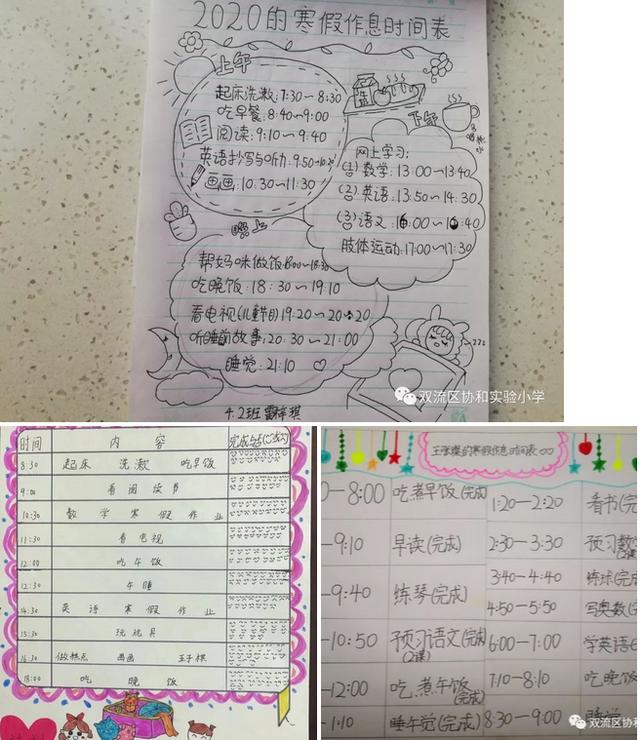 2020的寒假作息时间表
上午
起床洗漱:7:30～8:30
吃早餐:8:40～9:00
阅读:9:10～9:40
英语抄写与听力:9:50~10:20
画画:10:30~11:30
下午
网上学习:
(1)数学:13:00~13:40
(2)英语:13:50~14:30
(3)语文:16:00~16:40
肢体运动:17:00~17:30
晚上
帮妈咪做饭18:00~18:30
吃晚饭:18:30~19:10
看电视(儿童节目)19:20~20:20
听睡前故事:20:30~21:00
睡觉:21:10
zzz
4.2班
双流区协和实验小学
时间 内容
8:30 起床 洗漱 吃早饭
9:00 看阅读书
10:30 数学寒假作业
11:30 看电视
12:00 吃午饭
12:30 午睡
14:30 英语寒假作业
15:30 玩玩具
16:30 做糕点 画画 五子棋
18:00 吃晚饭
的寒假作息时间表
0-8:00 吃煮早饭(完成) 1:20-2:20 看书(完
-9:10 早读(完成) 2:30-3:30 预习数
-9:40 练琴(完成) 3:40-4:40 练球(完
4:50-5:50 写奥数(
-10:50 预习语文(完成) 6:00-7:00 学英语(
(2课)
-12:00 吃,煮午饭(完成) 7:10-8:10 吃晚饭
-1:10 睡午觉(完成) 8:30-9:00
双流区协和